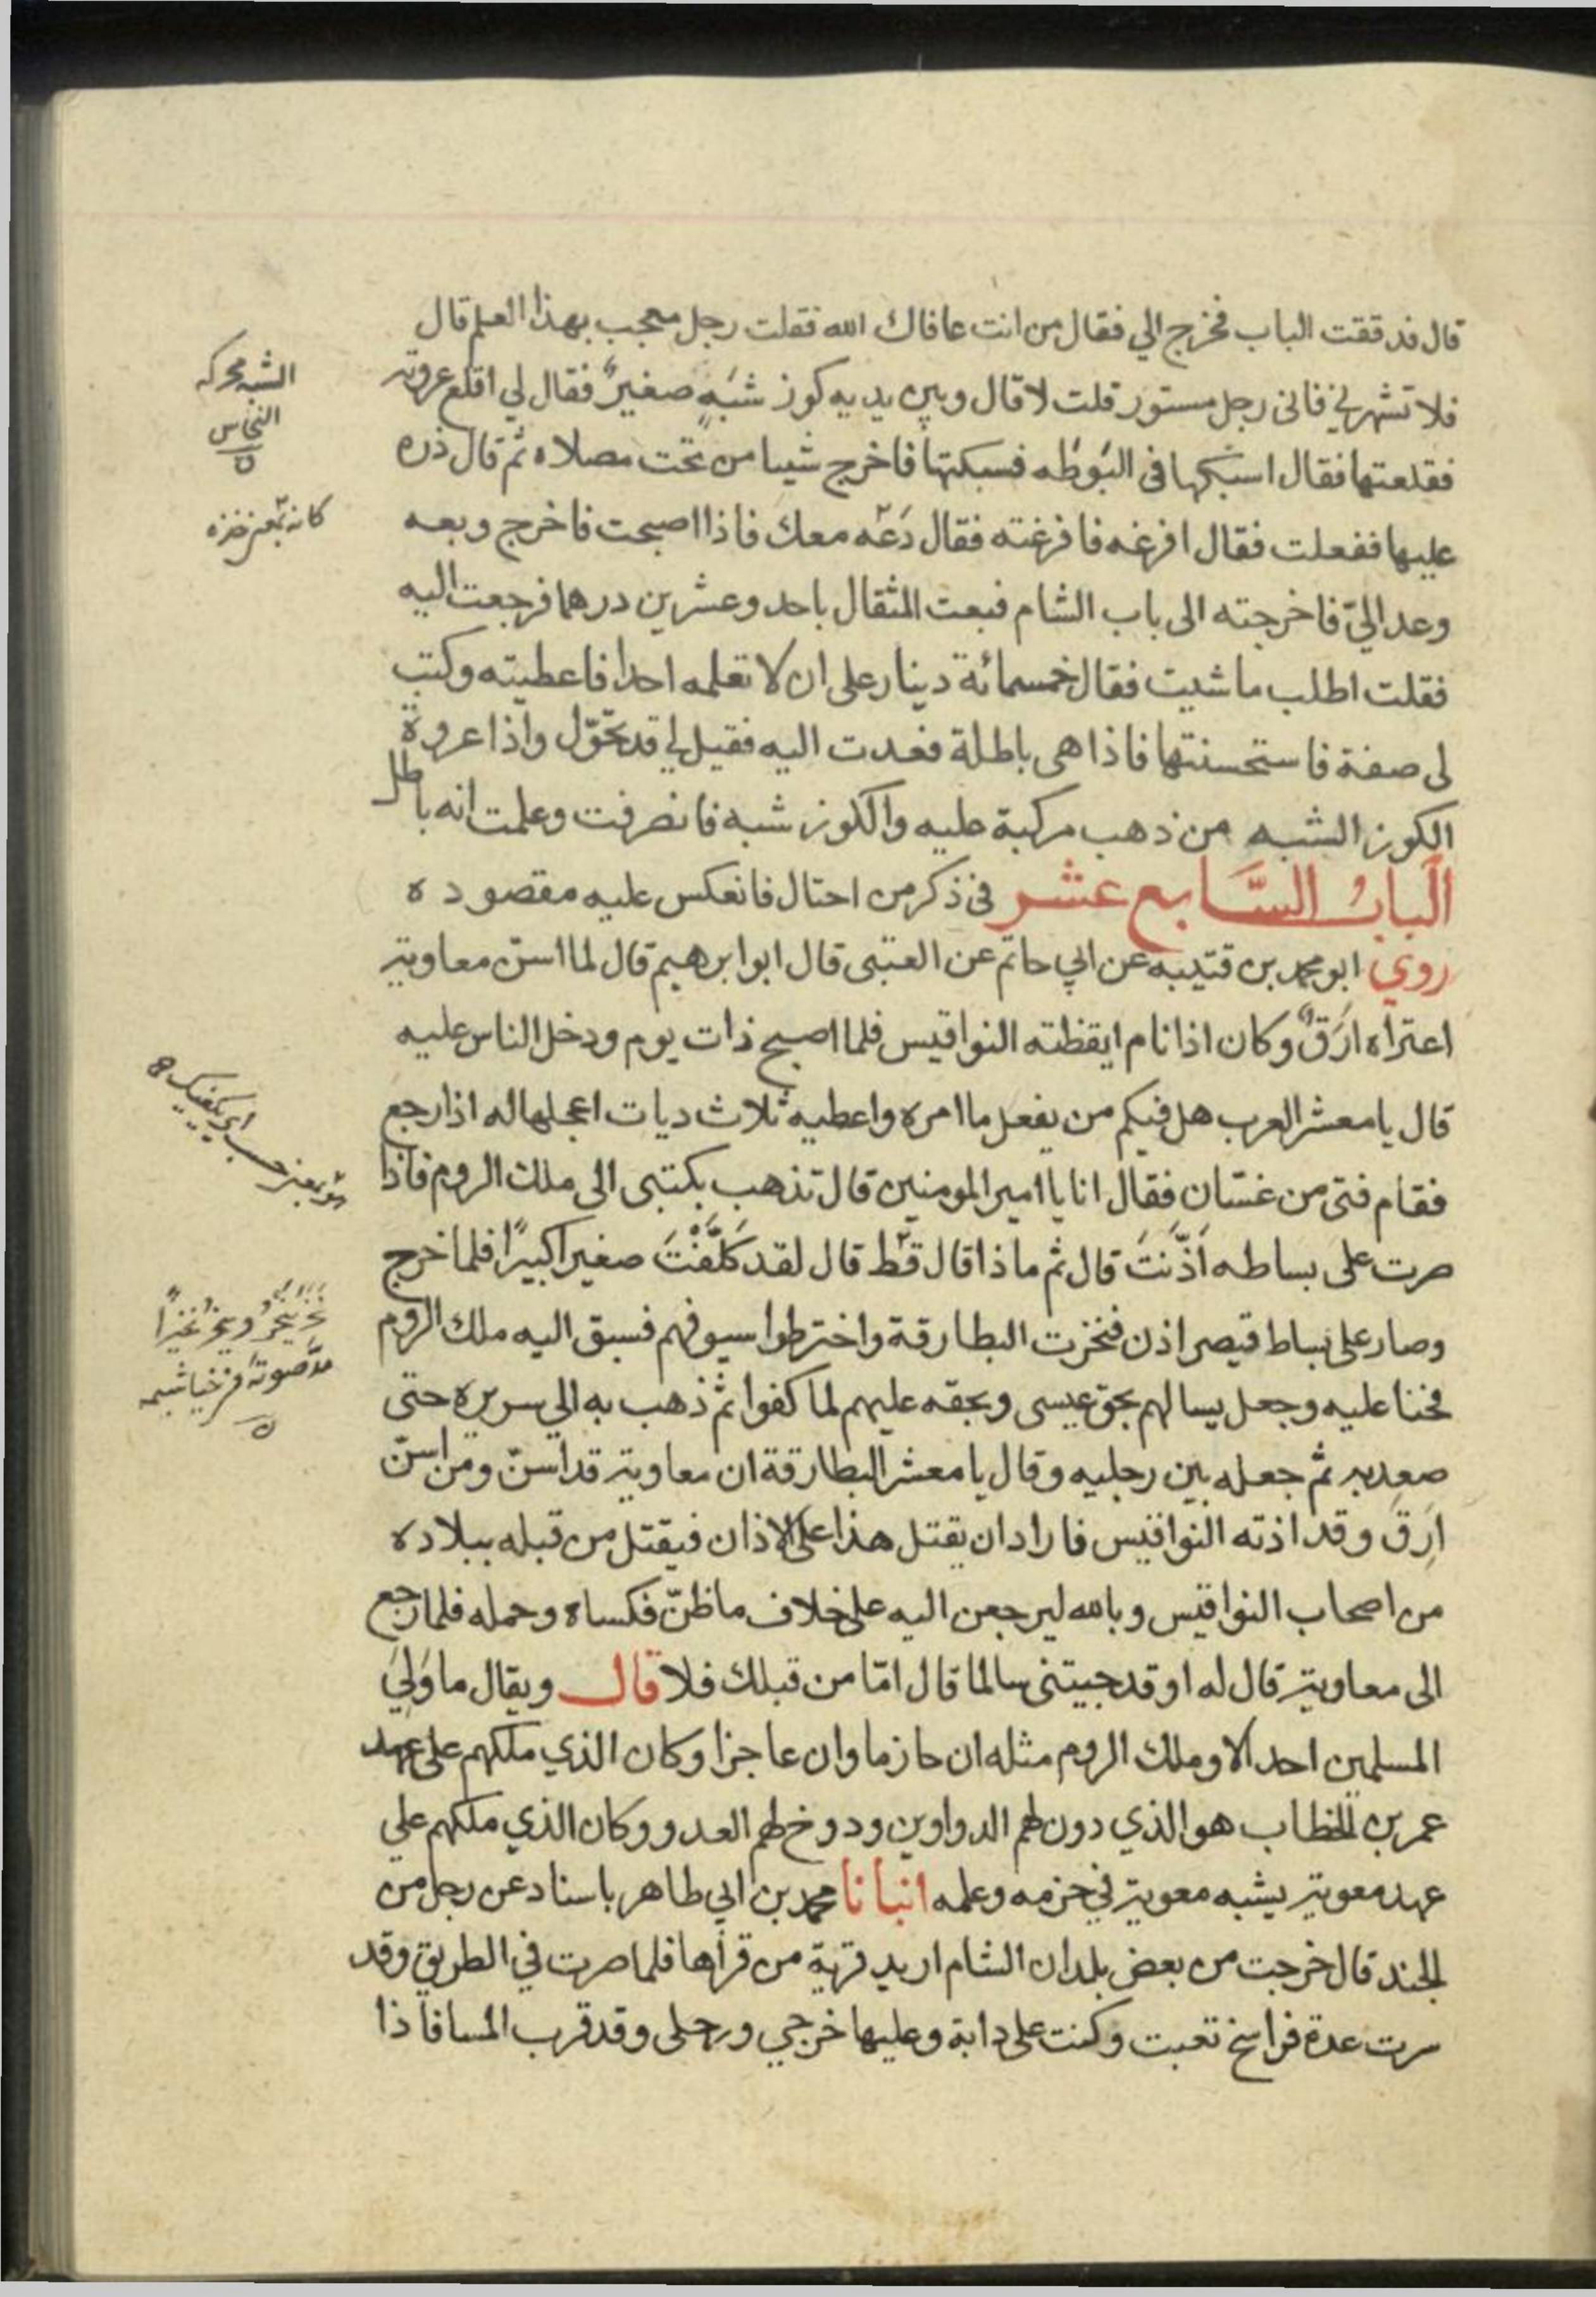 قال فدققت الباب فخرج الي فقال من انت عافاك الله فقلت رجل معجب بهذا العلم قال
فلا تشهرني فانى رجل مستور قلت لا قال وبين يديه كوز شَبَهٍ صغيرٌ فقال لي اقلع عروته
فقلعتها فقال اسبكها فى البَوطَه فسبكتها فاخرج شيا من تحت مصلاه ثم قال ذره
عليها ففعلت فقال افرغه فافرغته فقال دَعْه معك فاذا اصبحت فاخرج وبعه
وعد اليّ فاخرجته الى باب الشام فبعت المثقال باحد وعشرين درهما فرجعت اليه
فقلت اطلب ما شيت فقال خمسمائة دينار على ان لا تعلمه احدا فاعطيته وكتب
لى صفة فاستحسنتها فاذا هى باطلة فعدت اليه فقيل لي قد تحوّل واذا عروة
الكوز الشبه من ذهب مركبة عليه والكوز شبه فانصرفت وعلمت انه باطل
الباب السَّابع عشر فى ذكر من احتال فانعكس عليه مقصوده
روي ابو محمد بن قتيبه عن ابي حاتم عن العتبى قال ابو ابرهيم قال لما اسن معاوية
اعتراه ارَقٌ وكان اذا نام ايقظته النواقيس فلما اصبح ذات يوم ودخل الناس عليه
قال يا معشر العرب هل فيكم من يفعل ما امره واعطيه ثلاث ديات اعجلها له اذا رجع
فقام فتى من غسّان فقال انا يا امير المومنين قال تذهب بكتبى الى ملك الروم فاذا
صرت على بساطه اَذّنتَ قال ثم ماذا قال قَط قال لقد كَلَّفْتَ صغيرا كبيرًا فلما خرج
وصار على بساط قيصر اذن فنخزت البطارقة واخترطوا سيوفهم فسبق اليه ملك الروم
فحنا عليه وجعل يسالهم بحق عيسى وبحقه عليهم لما كفوا ثم ذهب به الي سريره حتى
صعد به ثم جعله بين رجليه وقال يا معشر البطارقة ان معاوية قد اسنّ ومن اسنّ
ارِقَ وقد اذته النواقيس فاراد ان يقتل هذا على الاذان فيقتل من قبله ببلاده
من اصحاب النواقيس وبالله ليرجعن اليه على خلاف ما ظنّ فكساه وحمله فلما رجع
الى معاوية قال له او قد جيتنى سالما قال امّا من قبلك فلا قال ويقال ما وَلِيَ
المسلمين احد الا وملك الروم مثله ان حازما وان عاجزا وكان الذي ملكهم على عهد
عمر بن الخطاب هو الذي دون لهم الدواوين ودوخ لهم العدو وكان الذي ملكهم علي
عهد معوية يشبه معوية في حزمه وعلمه انبانا محمد بن ابي طاهر باسناد عن رجل من
الجند قال خرجت من بعض بلدان الشام اريد قرية من قراها فلما صرت في الطريق وقد
سرت عدة فراسخ تعبت وكنت على دابة وعليها خرجي ورحلى وقد قرب المسا فاذا
الشبه محركه
النحاس
ه
نخَر ينخِرُ وينخُرُ نخيرًا
مدّ صوته فى خياشيمه
ه